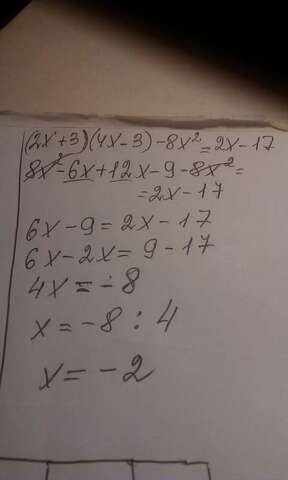 (2x+3)(4x-3)-8x²=2x-17
8x²-6x+12x-9-8x²=
=2x-17
6x-9=2x-17
6x-2x=9-17
4x=-8
x=-8:4
x=-2